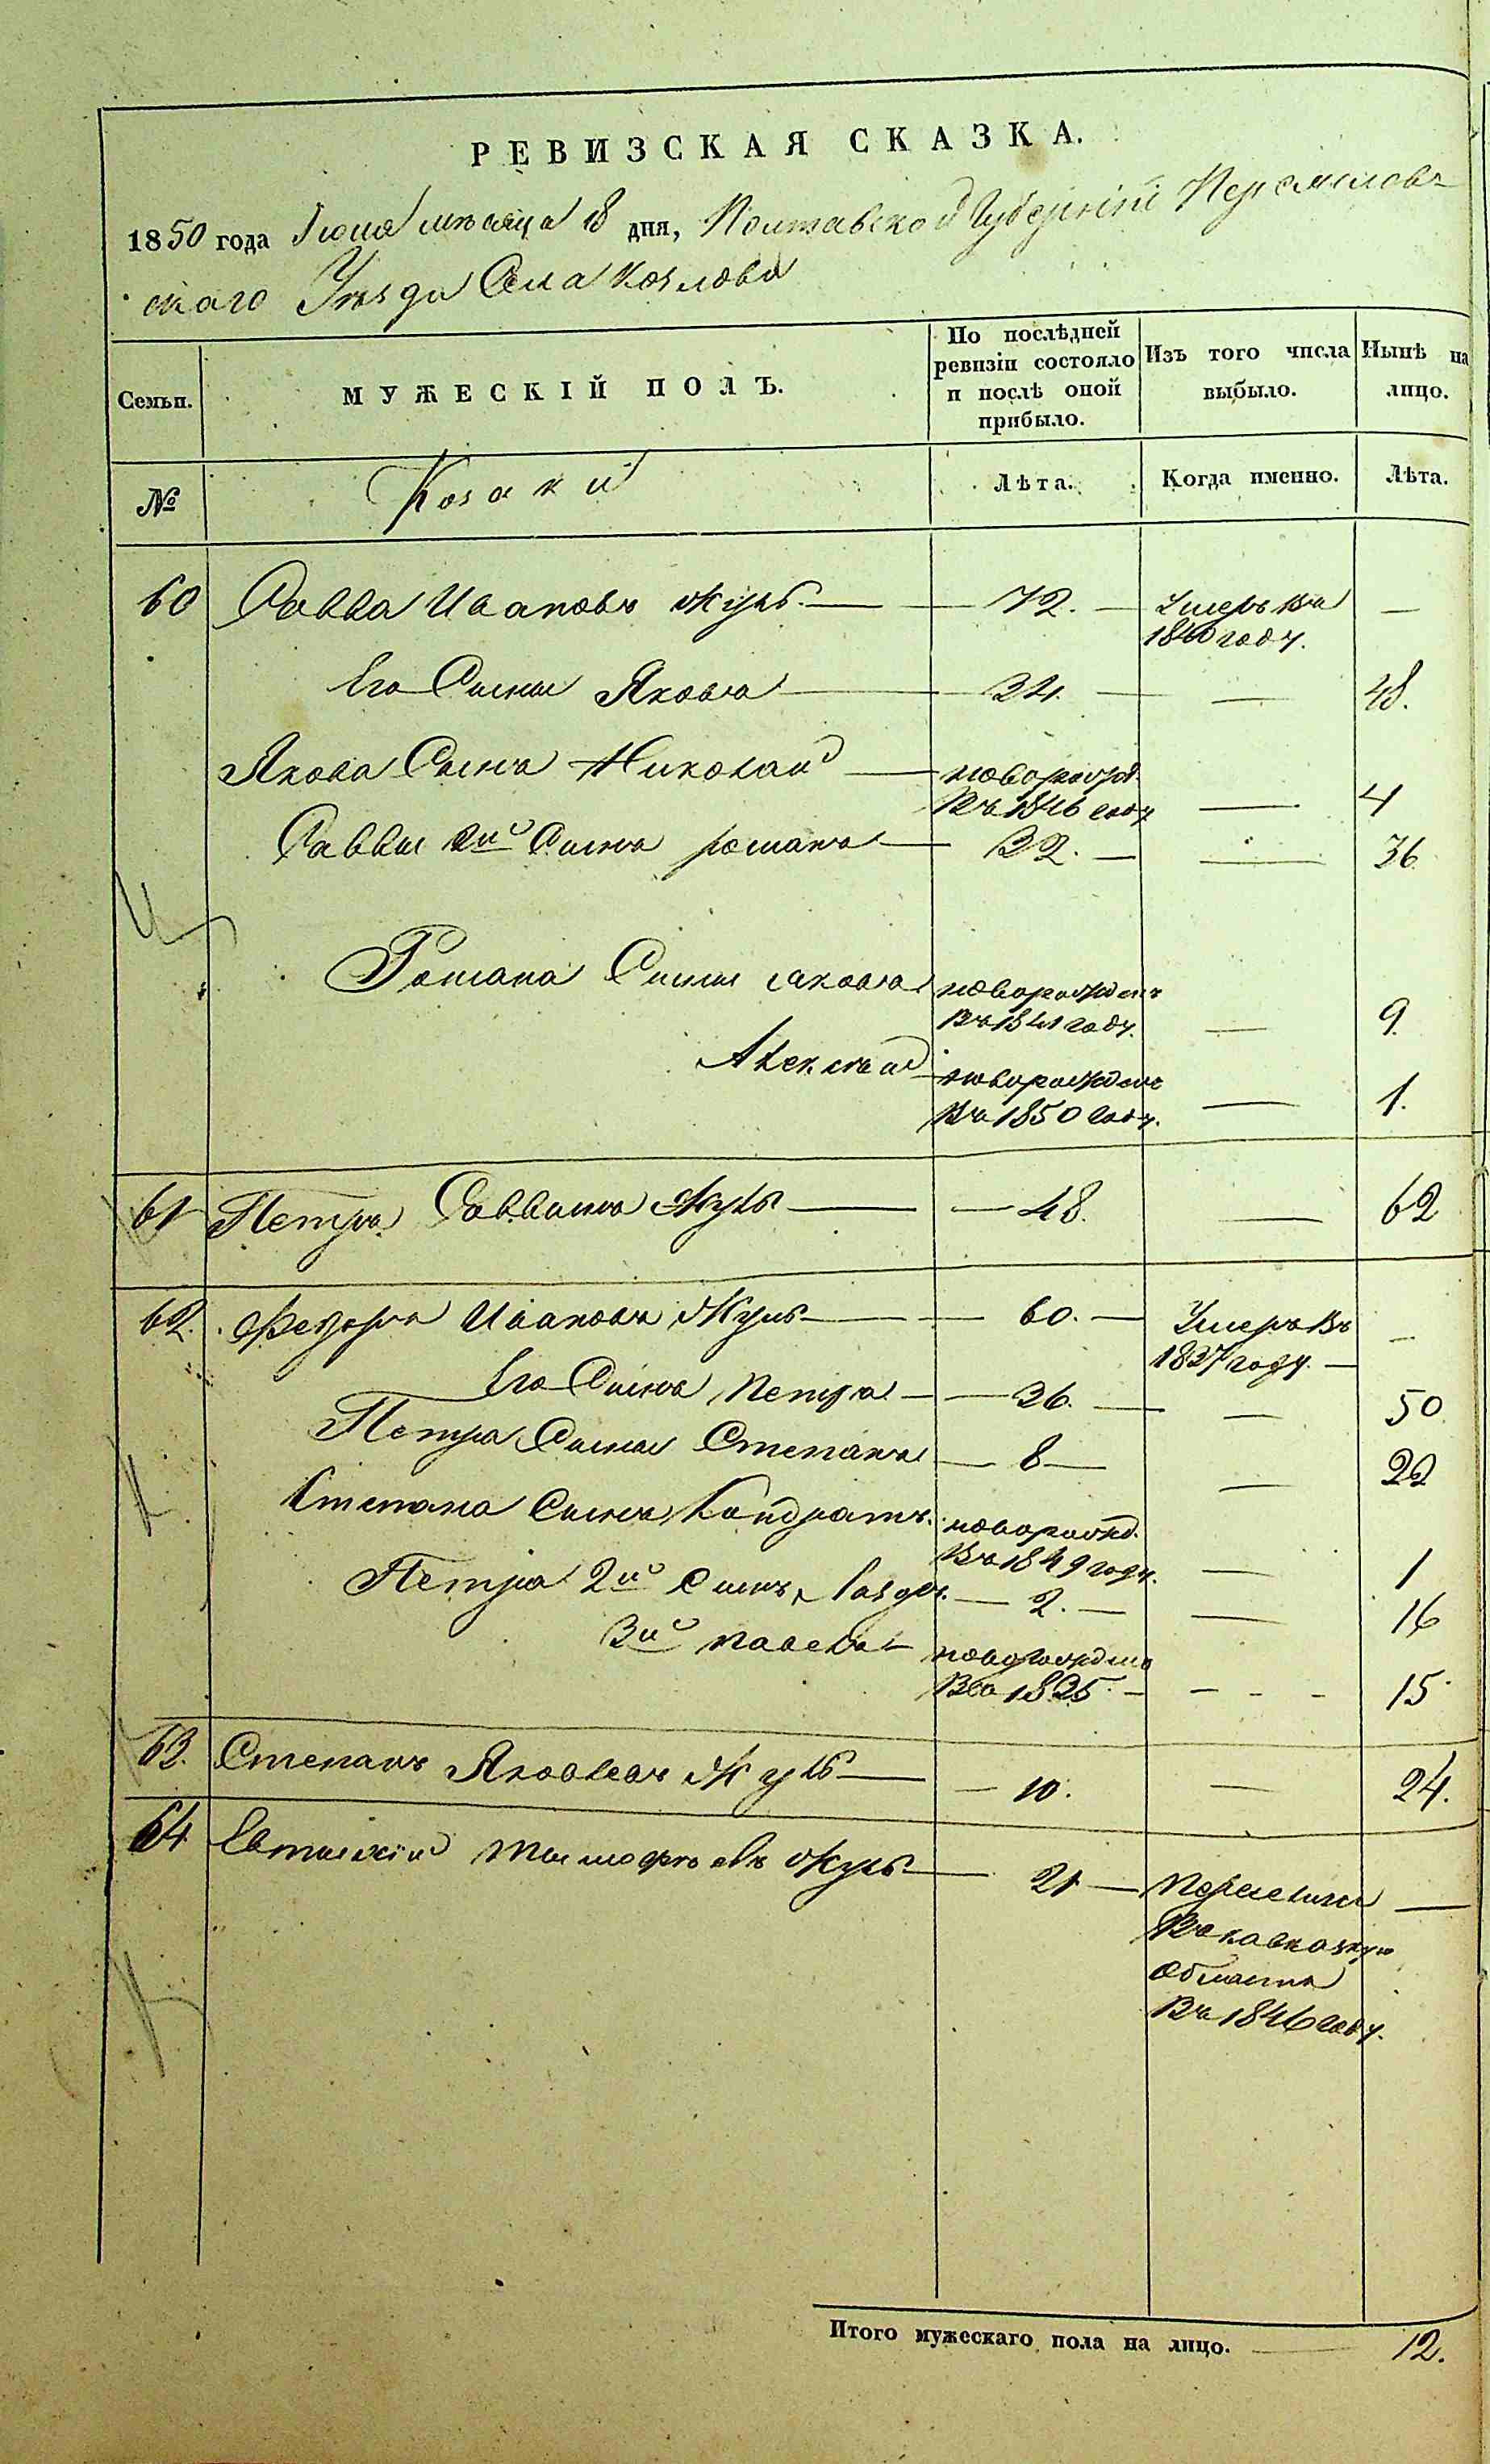 РЕВИЗСКАЯ СКАЗКА.
1850 года Іюня мѣсяца 18 дня, Полтавской Губерніи Переяслов-
скаго Уѣзда Села Козлова
Семьи. МУЖЕСКІЙ ПОЛЪ. По послѣдней ревизіи состояло и послѣ оной прибыло. Изъ того числа выбыло. Нынѣ на лицо.
№ Козаки Лѣта. Когда именно. Лѣта.
60 Савва Ивановъ Жукъ — 72. — Умеръ въ 1840 году. —
Его Сыны Яковъ — 34. — — 48.
Якова Сынъ Николай — новорожд. въ 1846 году — 4
Саввы 2й Сынъ романъ — 32. — — 36
Романа Сыны яковъ новорожденъ въ 1841 году. — 9.
Алексѣй новорожденъ въ 1850 году. — 1.
61 Петръ Саввинъ Жукъ — 48. — 62
62. Федоръ Ивановъ Жукъ — 60. — Умеръ въ 1837 году. — —
Его Сынъ Петръ — 36. — — 50
Петра Сыны Степанъ — 8 — — 22
Степана Сынъ Кондратъ. новорожд. въ 1849 году. — 1
Петра 2й Сынъ — 2. — — 16
3й павелъ — новорожденъ въ 1835. — - - - 15
63. Степанъ Яковлевъ Жукъ — 10. — 24.
64 Евтихій Тимофѣевъ Жукъ — 21 — Переселился въ кавказкую область въ 1846 году. —
Итого мужескаго пола на лицо. — 12.